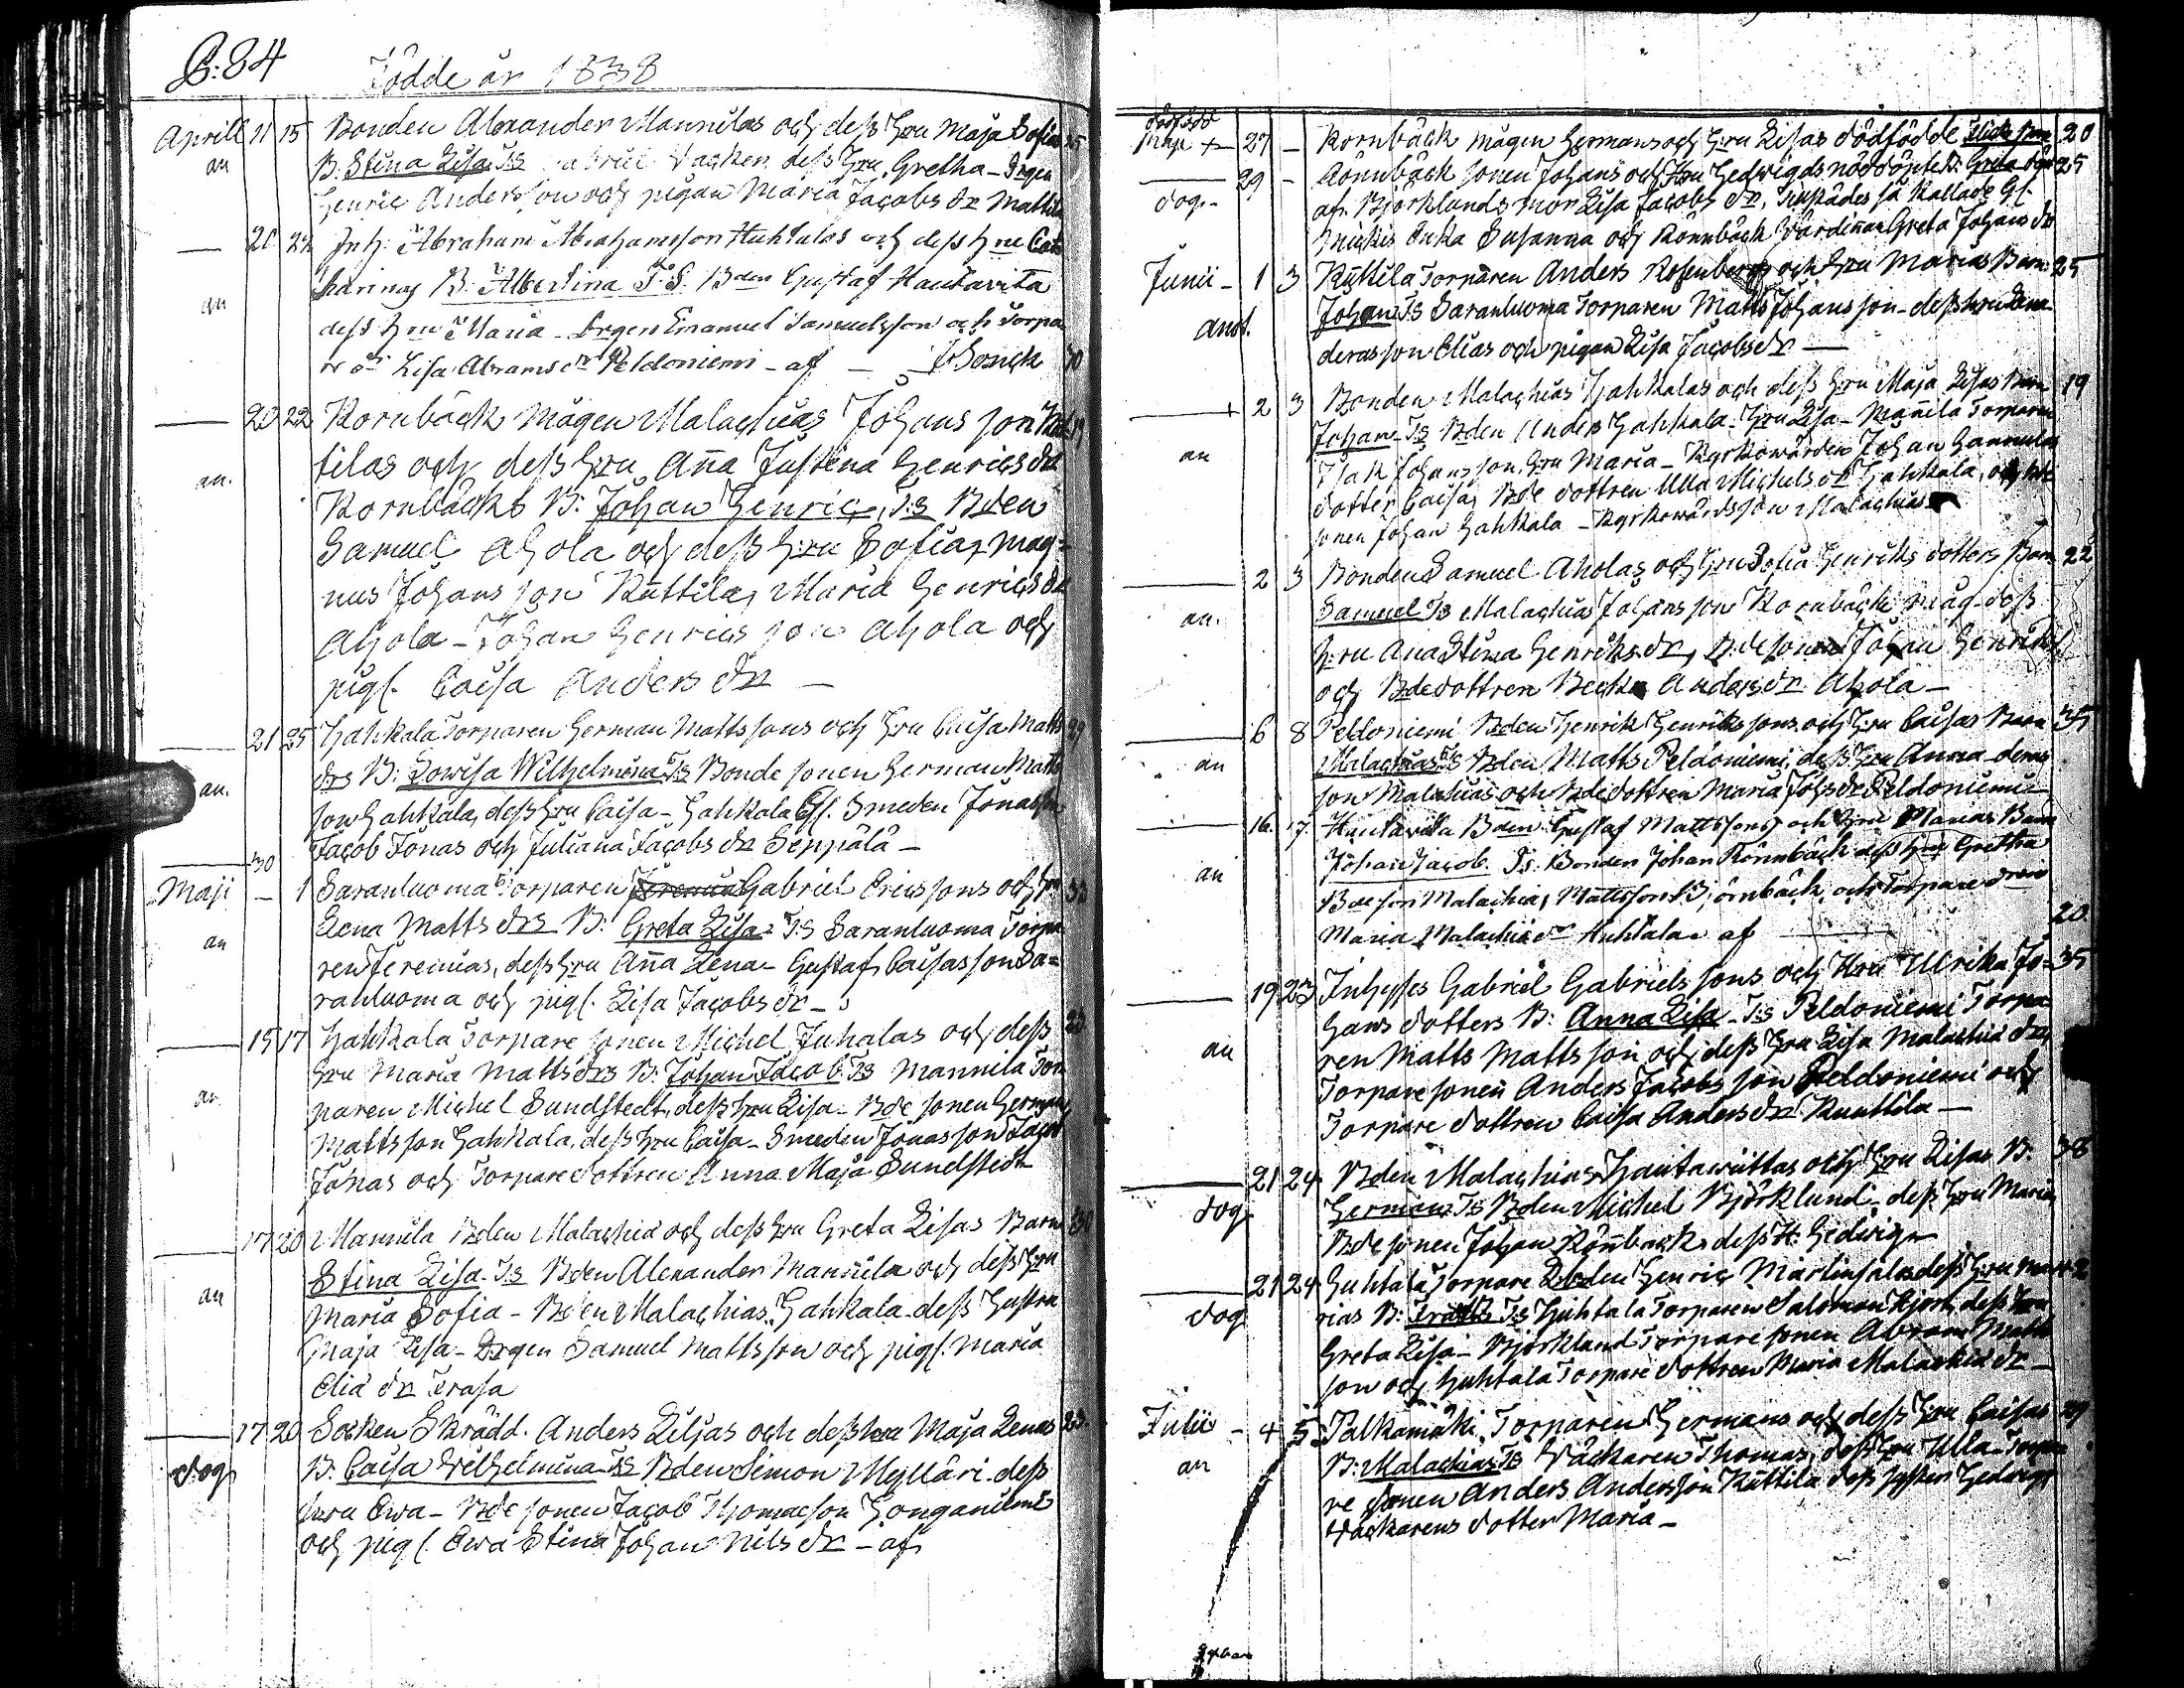 B:84
Födde år 1838
Aprill 11 15 Bonden Alexander Mannilas och dess Hru Maja Sofias 25
an B. Stina Lisa T.s Gabriel Backen dess Hru Gretha - Drgen
Henric Andersson och pigan Maria Jacobs dr Mattila
— 20 22 Inh: Abraham Abrahamsson Huhtalas och dess Hru Cat-
an harinas B: Albertina T.S. Bden Gustaf Hautavita
dess Hru Maria - Drgen Emanuel Samuelsson och Torpa
re dr Lisa Abrams dr Peldoniemi - af — 40
— 20 22 Kornbäck mågen Malachias Johans son
an. tilas och dess Hru Anna Justina Henrics dr
Kornbäcks B: Johan Henric, T:s Bden
Samuel Ahola och dess Hru Sofia, Mag-
nus Johans son Kuttila, Maria Henrics dr
Ahola - Johan Henrics son Ahola och
pig. Caisa Anders dr —
— 21 25 Hahkala Torparen Herman Mattssons och Hru Caisa Matts 29
an. drs B: Lowisa Wilhelmina T.s Bonde sonen Herman Matts
son Hahkala, dess Hru Caisa - Hahkala Smeden Jonasson
Jacob Jonas och Juliana Jacobs dr Seppälä —
— 30
Maji — 1 Saranluoma Torparen Gabriel Ericssons och Hru 33
an Lena Matts drs B: Greta Lisa T:s Saranluoma Torpa
ren Jeremias, dess Hru Anna Lena - Gustaf Caisas son Sa-
ranluoma och pig. Lisa Jacobs dr —
— 15 17 Hahkala Torpare sonen Michel Juhalas och dess 23
an Hru Maria Matts drs B: Johan Jacob T.s Mannila Tor
paren Michel Sundstedt, dess Hru Lisa - Bde sonen Herman
Mattsson Hahkala, dess Hru Caisa - Smeden Jonasson Jacob
Jonas och Torpare dottren Anna Maja Sundstedt
— 17 20 Mannila Bden Malachia och dess Hru Greta Lisas Barn 30
an Stina Lisa T.s Bden Alexander Mannila och dess Hru
Maria Sofia - Bden Malachias Hahkala dess Hustru
Maja Lisa - Drgen Samuel Mattsson och pig. Maria
Elia dr Frasa
— 17 20 Socken Skrädd. Anders Liljas och dess Hru Maja Lenas 23
dog B: Caisa Wilhelmina T.s Bden Simon Mylläri dess
Hru Ewa - Bde sonen Jacob Thomasson Honganiemi
och pig. Ewa Stina Johan Nils dr - af
dödfödd
Maji + 27 — Kornbäck mågen Hermans och Hru Lisas dödfödde 20
— 29 — Rönnbäck sonen Johans och Hru Hedwigs nöddöpte B. Greta 25
dog - af Björklunds mor Lisa Jacobs dr, så kallade
Enka Susanna och Rönnbäck Värdinnan Greta Johans dr
Junii - 1 3 Kuttila Torparen Anders Rosenbergs och Hru Marias Barn 25
anst. Johan T:s Saranluoma Torparen Matts Johansson - dess Hru Lena
deras son Elias och pigan Lisa Jacobs dr —
— + 2 3 Bonden Malachias Hahkalas och dess Hru Maja Lisas Barn 19
an Johan T:s Bden Anders Hahkala - Hru Lisa - Mannila Torparen
Isak Johansson, Hru Maria - Kyrkowärden Johan Hannulas
dotter Caisa, Bde dottren Ulla Michels dr Hahkala, och
sonen Johan Hahkala - Kyrkowärds son Malachias
— 2 3 Bonden Samuel Aholas och Hru Sofia Henriks dotters Barn 22
an. Samuel T:s Malachias Johansson Kornbäcks måg - dess
Hru Anna Stina Henriks dr, Bde sonen Johan Henriks
och Bde dottren Anders dr Ahola —
— 6 8 Peldoniemi Bden Henrik Henrikssons och Hru Caisas Barn 35
an Malachias T:s Bden Matts Peldoniemi, dess Hru Anna - deras
son Malachias och Bde dottren Maria Johs dr Peldoniemi
— 16. 17. Hautavita Bden Gustaf Mattssons och Hru Marias Barn
an Johan Jacob. T.s. Bonden Johan Rönnbäck dess Hru Gretha
Bde son Malachias Mattsson Björnbäck och Torpare dren
Maria Malachia dr Huhtala - af — 20
— 19 23 Inhyses Gabriel Gabriels sons och Hru Ulrika Jo- 35
an hans dotters B: Anna Lisa - T:s Peldoniemi Torpa-
ren Matts Mattsson och dess Hru Lisa Malachia dr,
Torpare sonen Anders Jacobs son Peldoniemi och
Torpare dottren Caisa Anders dr Kuuttila —
— 21 24 Bden Malachias Hautawiittas och Hru Lisas B: 38
dog Herman T:s Bden Michel Björklund dess Hru Maria,
Bde sonen Johan Rönnback dess H: Hedwig
— 21 24 Huhtala Torpare Henric Martinsalos dess Hru Ma-
dog rias B: T:s Huhtala Torparen Salomon Hjort, dess Hru
Greta Lisa - Björklund Torpare sonen Abram Matts
son och Huhtala Torpare dottren Maria Malachia dr —
Julii - 4 5 Palkamäki Torparen Hermans och dess Hru Caisas 29
an B: Malachias T:s Väckaren Thomas, dess Hru Ulla - Torpa
re sonen Anders Andersson Kuttila dess syster Hedwig
Väckarens dotter Maria —